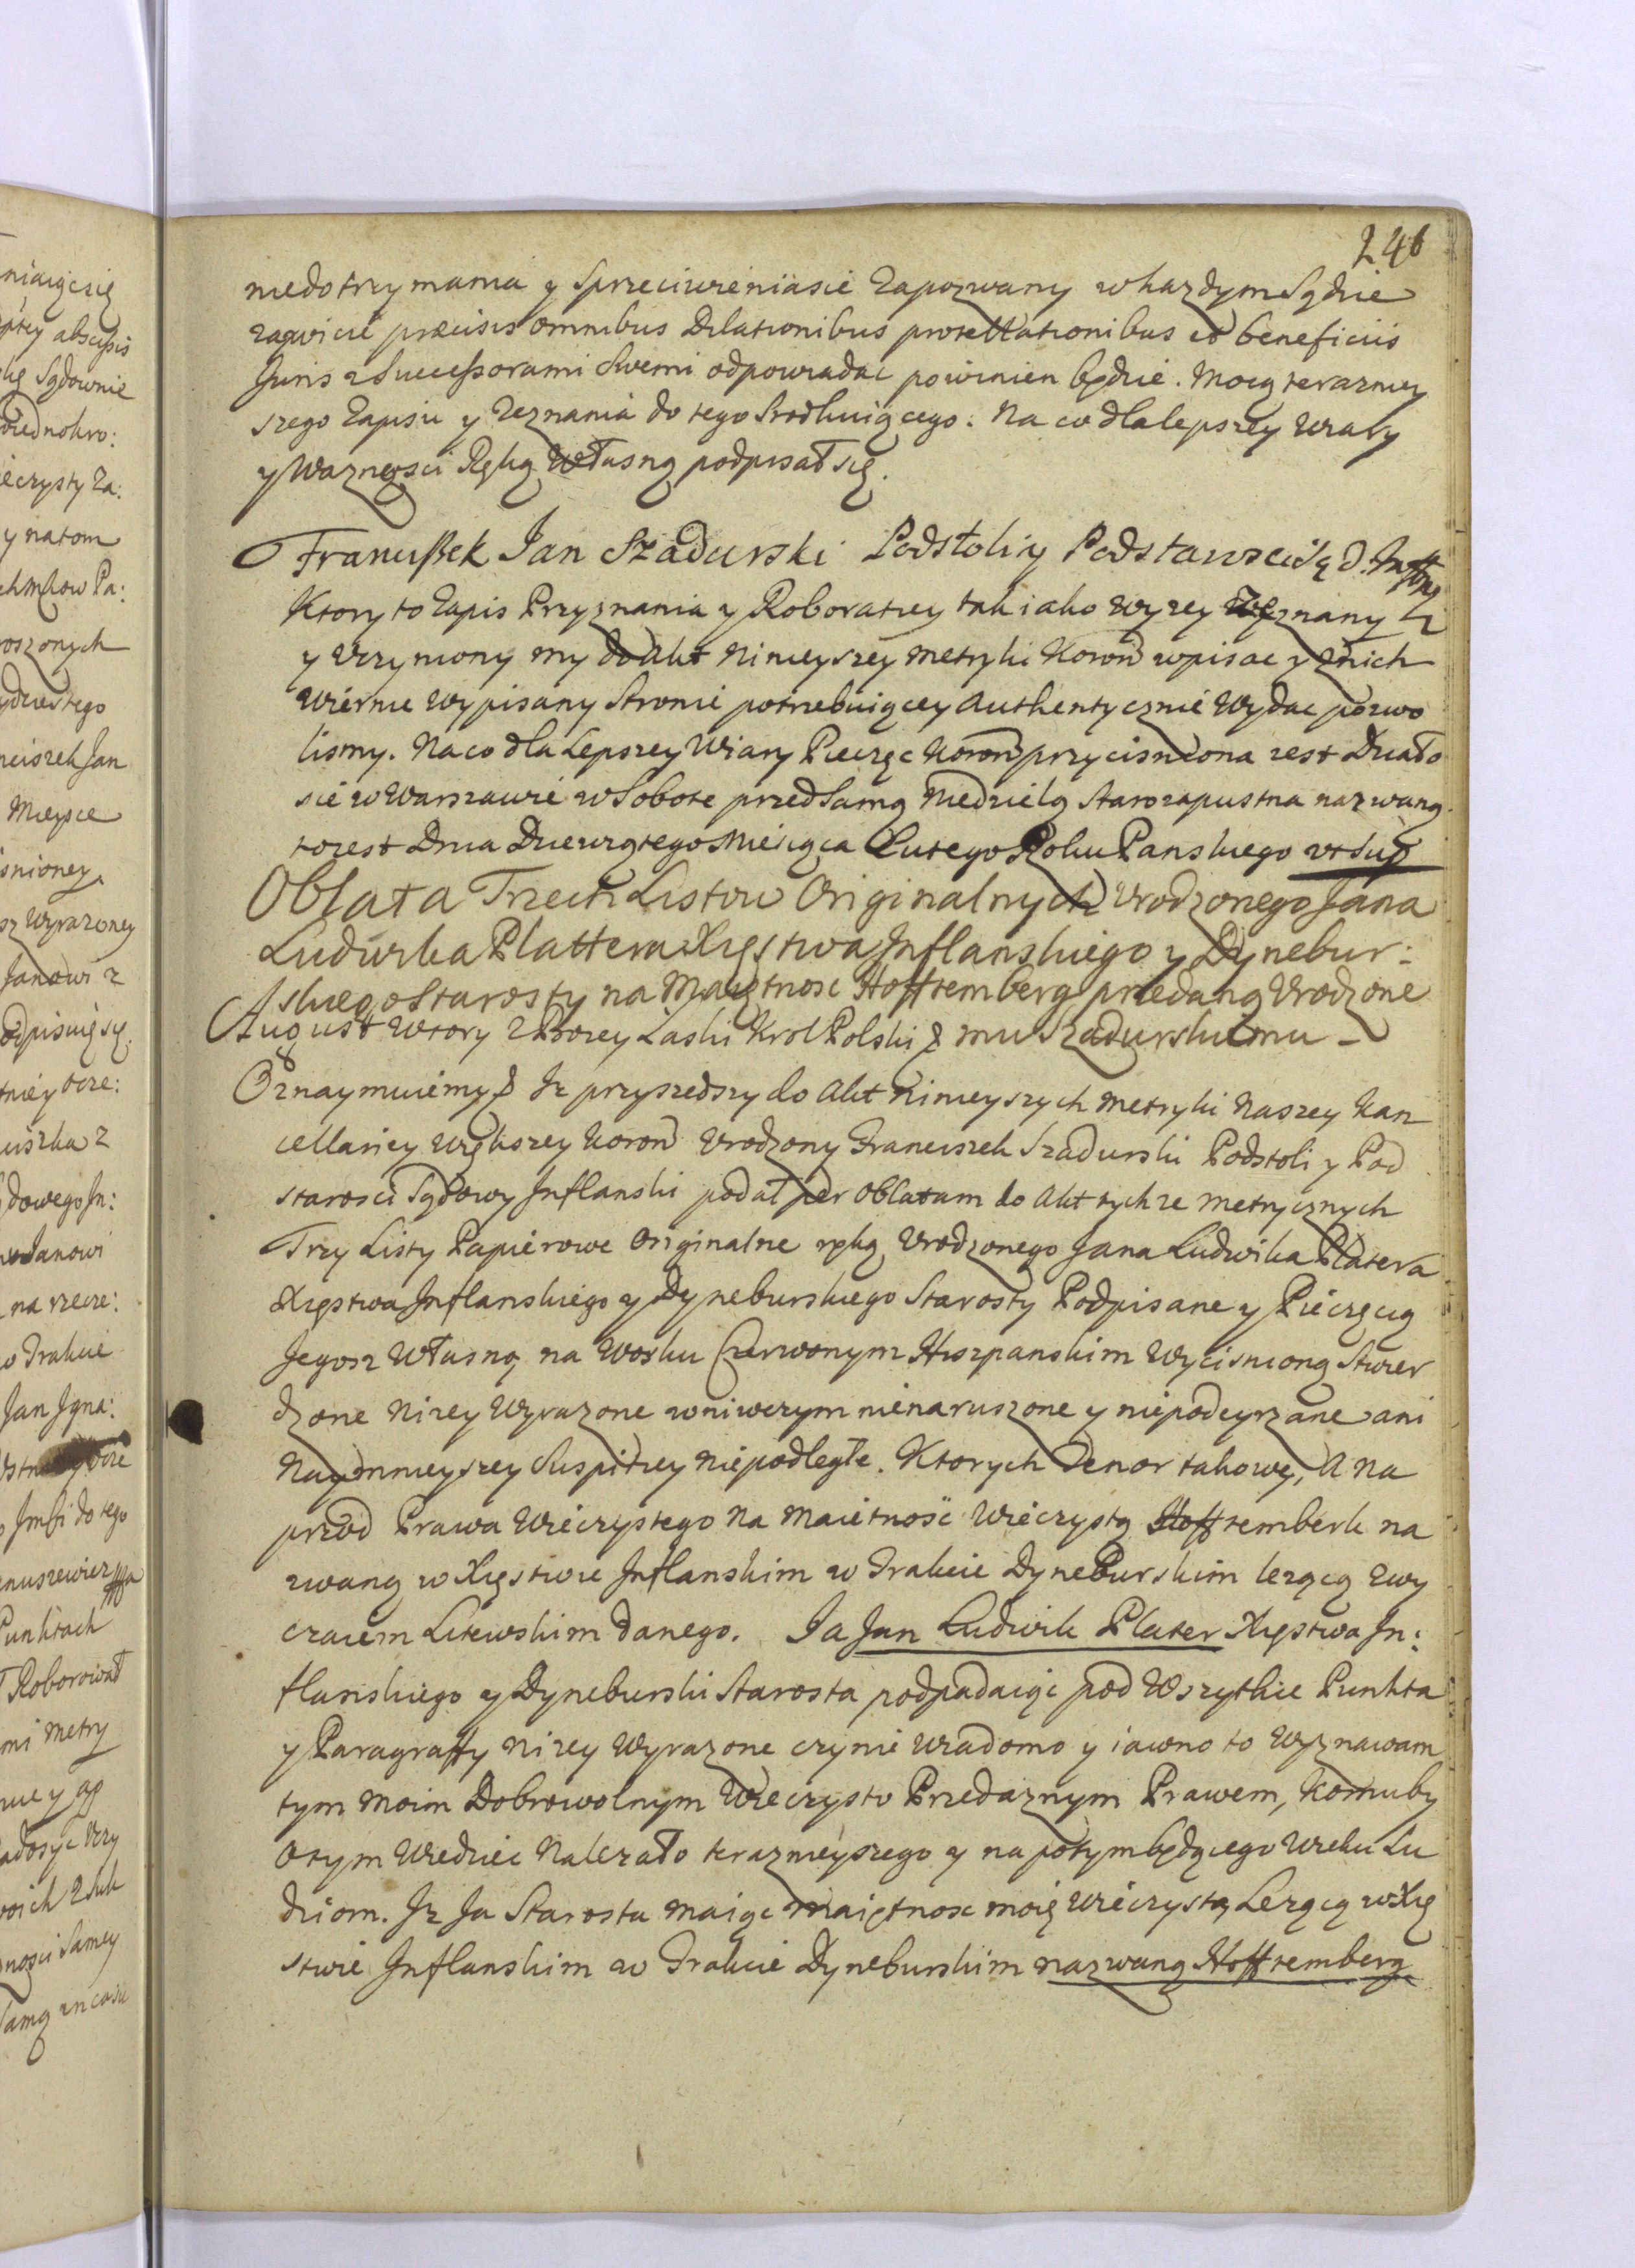 246
niedotrzymania y Sprzeciwieniasie Zapozwany w kazdym Sądzie
zawicie præcisis omnibus Dilationibus protestationibus et beneficiis
Juris z Successorami Swemi odpowiadac powinien będzie. Mocą terazniey
szego Zapisu y Zeznania do tego Srodkuiącego. Na co dla lepszey Wiary
y Waznosci Ręką Własną podpisał się.
Franciszek Jan Szadurski Podstoli y Podstarosci Sąd. Inflan
Ktory to Zapis Przyznania y Roboratiey tak iako Wyzey Zeznany
y Uczyniony my do Akt Ninieyszey Metryki Koron wpisac y Znich
Wiernie Wypisany Stronie potrzebuiącey Authentycznie Wydac pozwo
lismy. Na co dla Lepszey Wiary Pieczęc Koron przycisniona iest Działo
sie w Warszawie w Sobote przed Samą Niedzielą Starozapustna nazwaną
to iest Dnia Dziewiątego Miesiąca Lutego Roku Panskiego vt Sup
Oblata Trzech Listow Originalnych Urodzonego Jana
Ludwika Plattera Xięstwa Inflanskiego y Dynebur:
skiego Starosty na Maiętnosc Hoffremberg przedaną Urodzone
August Wtory z Bozey Laski Krol Polski & mu Szadurskiemu _
Oznaymuiemy & Iz przyszedszy do Akt Ninieyszych Metryki Naszey Kan
cellariey Większey Koron Urodzony Franciszek Szadurski Podstoli y Pod
starosci Sądowy Inflanski podał per Oblatam do Akt tychze Metrycznych
Trzy Listy Papierowe Originalne ręką Urodzonego Jana Ludwika Platera
Xięstwa Inflanskiego y Dyneburskiego Starosty Podpisane y Pieczęcią
Jegosz Własną na Wosku Czerwonym Hiszpanskim Wycisnioną Stwier
dzone Nizey Wyrazone w niwczym nienaruszone y niepodeyrzane ani
Naymnieyszey Suspitiey Niepodległe. Ktorych Tenor takowy, A na
przod Prawa Wieczystego Na Maietnosc Wieczystą Hoffremberk na
zwaną w Xięstwie Inflanskim w Trakcie Dyneburskim lezącą Zwy
czaiem Litewskim danego. Ja Jan Ludwik Plater Xięstwa In:
flanskiego y Dyneburski Starosta podpadaiąc pod Wszytkie Punkta
y Paragraffy Nizey Wyrazone czynie Wiadomo y iawno to Wyznawam
tym Moim Dobrowolnym Wieczysto Przedaznym Prawem, komuby
O tym Wiedziec Nalezało teraznieyszego y na potym będącego Wieku Lu
dziom. Iz Ja Starosta Maiąc Maiętnosc moię Wieczystą Lezącą w Xię
stwie Inflanskim w Trakcie Dyneburskim nazwaną Hoffremberg